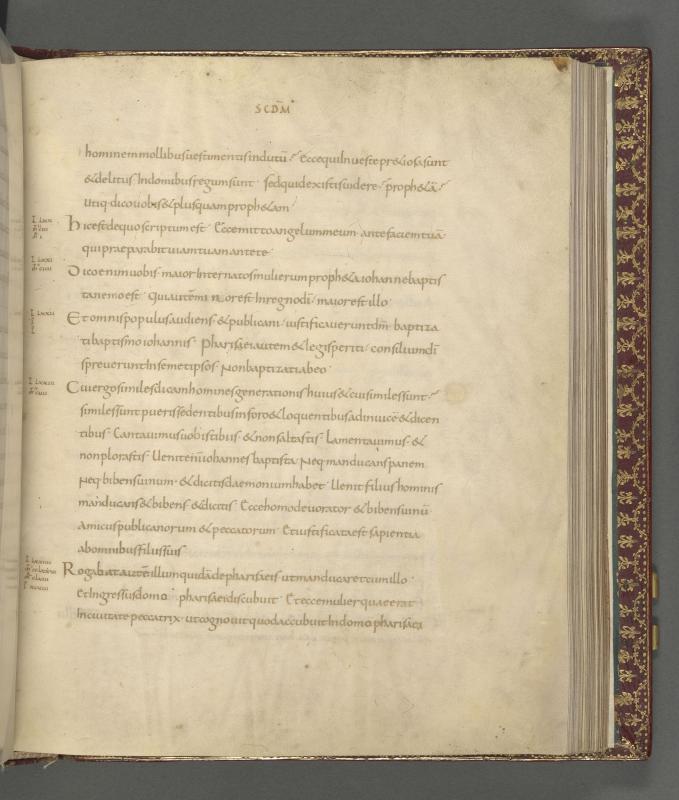 SCDM̄
hominem mollibus uestimentis indutū. Ecce qui In ueste pretiosa sunt
& delitiis Indomibus regum sunt. sed quid existis uidere. proph&ā.
Utiq. dico uobis & plus quam proph&am
hic est de quo scriptum est. Ecce mitto angelum meum. ante faciem tuā
qui praeparabit uiam tuam ante te.
Dico enim uobis. maior Inter natos mulierum proph&a iohanne baptis
ta nemo est. Qui autem minor est In regno dī. maior est illo.
Et omnis populus audiens & publicani. iustificauerunt dm̄. baptiza
ti baptismo iohannis. Pharisaei autem & legis periti. consilium dī
spreuerunt In semetipsos. Non baptizati ab eo.
Cui ergo similes dicam homines generationis huius & cui similes sunt.
similes sunt pueris sedentibus in foro & loquentibus ad inuicē & dicen
tibus. Cantauimus uobis tibiis. & non saltastis. Lamentauimus. &
non plorastis. Uenit eniū iohannes baptista. Neq. manducans panem.
Neq. bibens uinum. & dicitis daemonium hab&. Uenit filius hominis
manducans & bibens. & dicitis. Ecce homo deuorator & bibens uinū
Amicus publicanorum & peccatorum. Et iustificata est sapientia
ab omnibus filiis suis
Rogabat autē illum quidā de pharisaeis ut manducaret cum illo.
Et Ingressus domo pharisaei discubuit. Et ecce mulier quae erat
In ciuitate peccatrix. ut cognouit quod accubuit In domo pharisaei